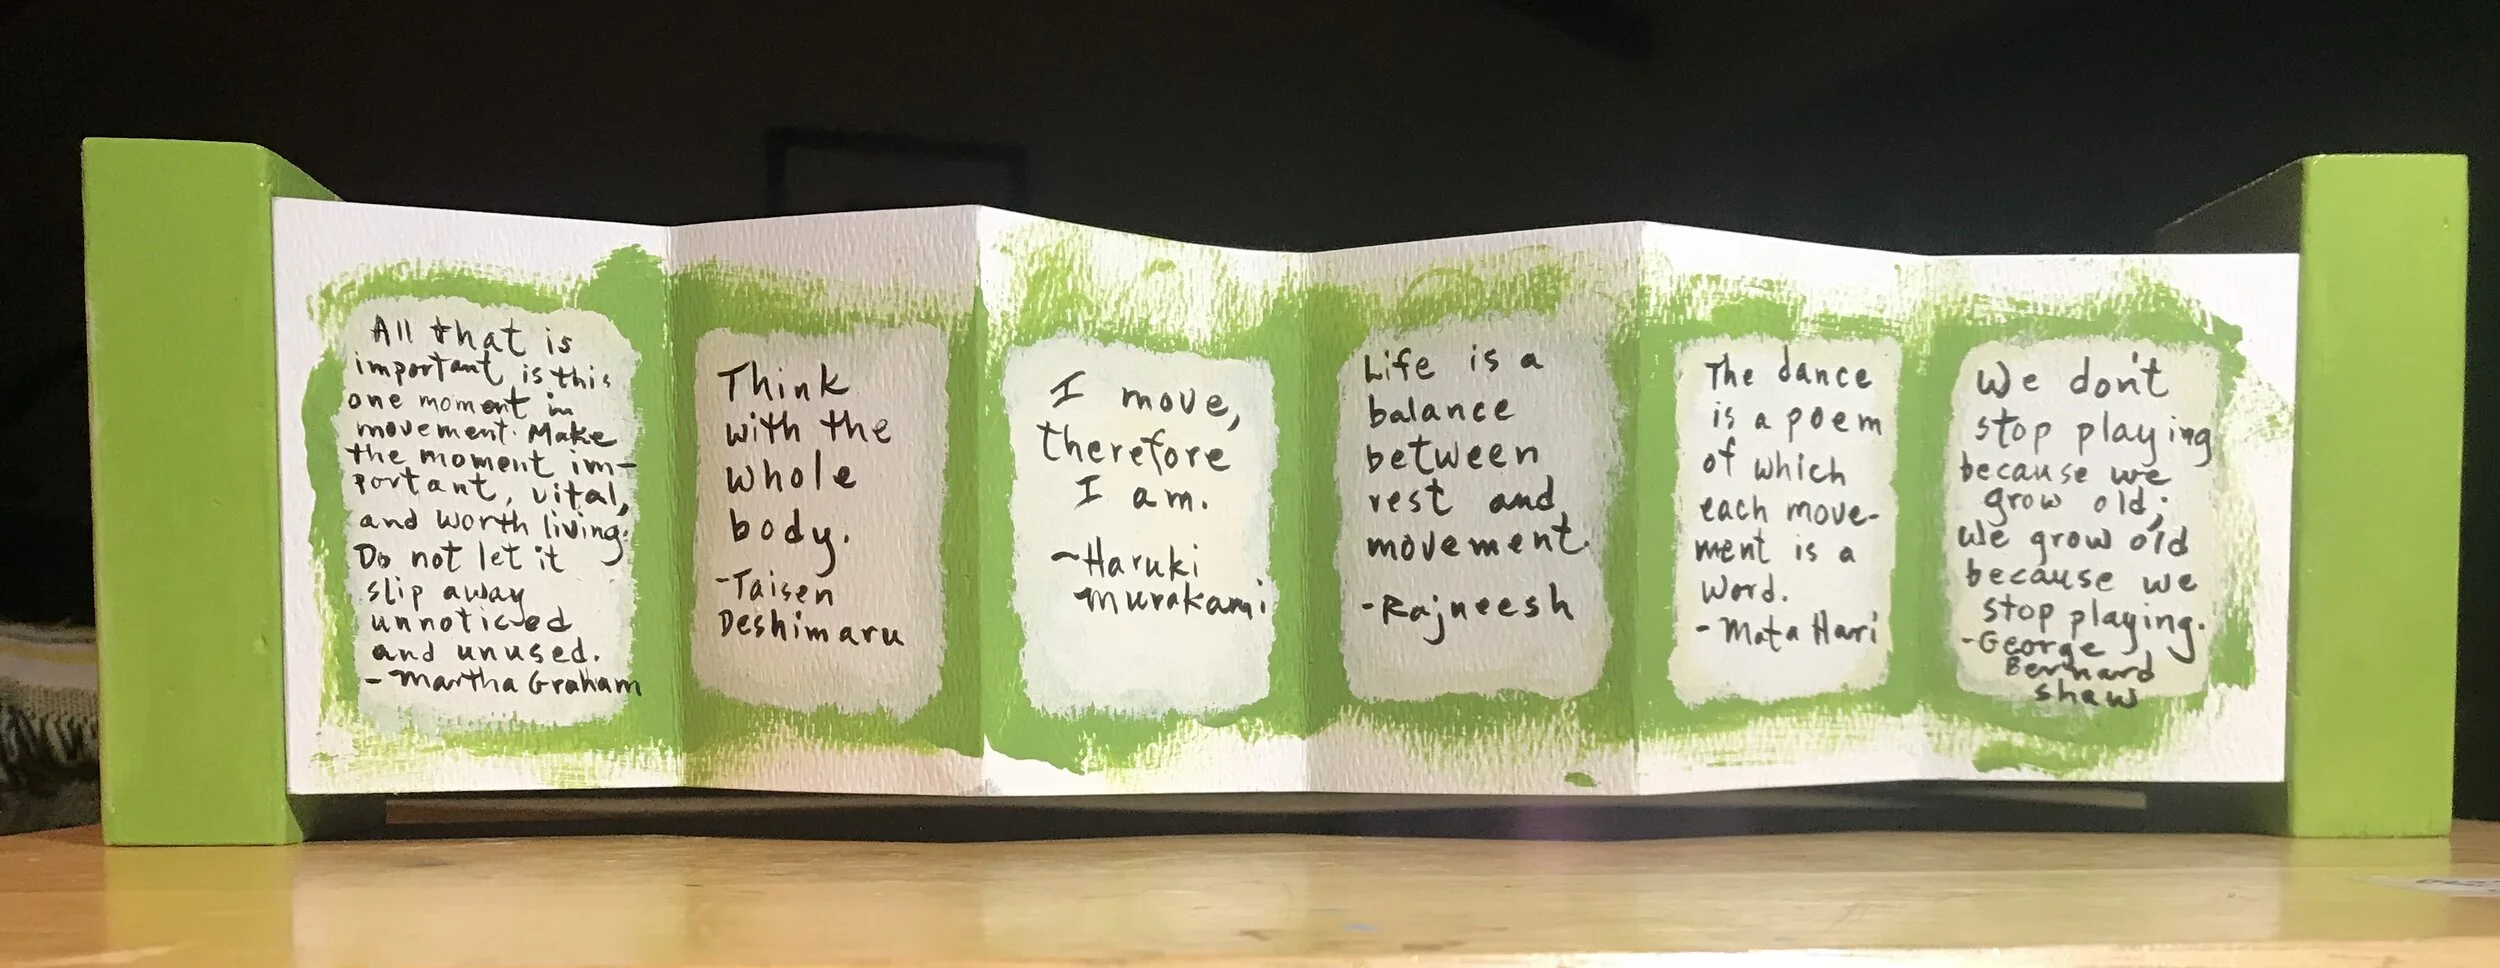 All that is
important, is this
one moment in
movement. Make
the moment im-
portant, vital,
and worth living.
Do not let it
slip away
unnoticed
and unused.
- Martha Graham
Think
with the
whole
body.
-Taisen
Deshimaru
I move,
therefore
I am.
~Haruki
Murakami
Life is a
balance
between
rest and
movement.
-Rajneesh
The dance
is a poem
of which
each move-
ment is a
word.
- Mata Hari
We don't
stop playing
because we
grow old;
we grow old
because we
stop playing.
-George
Bernard
Shaw